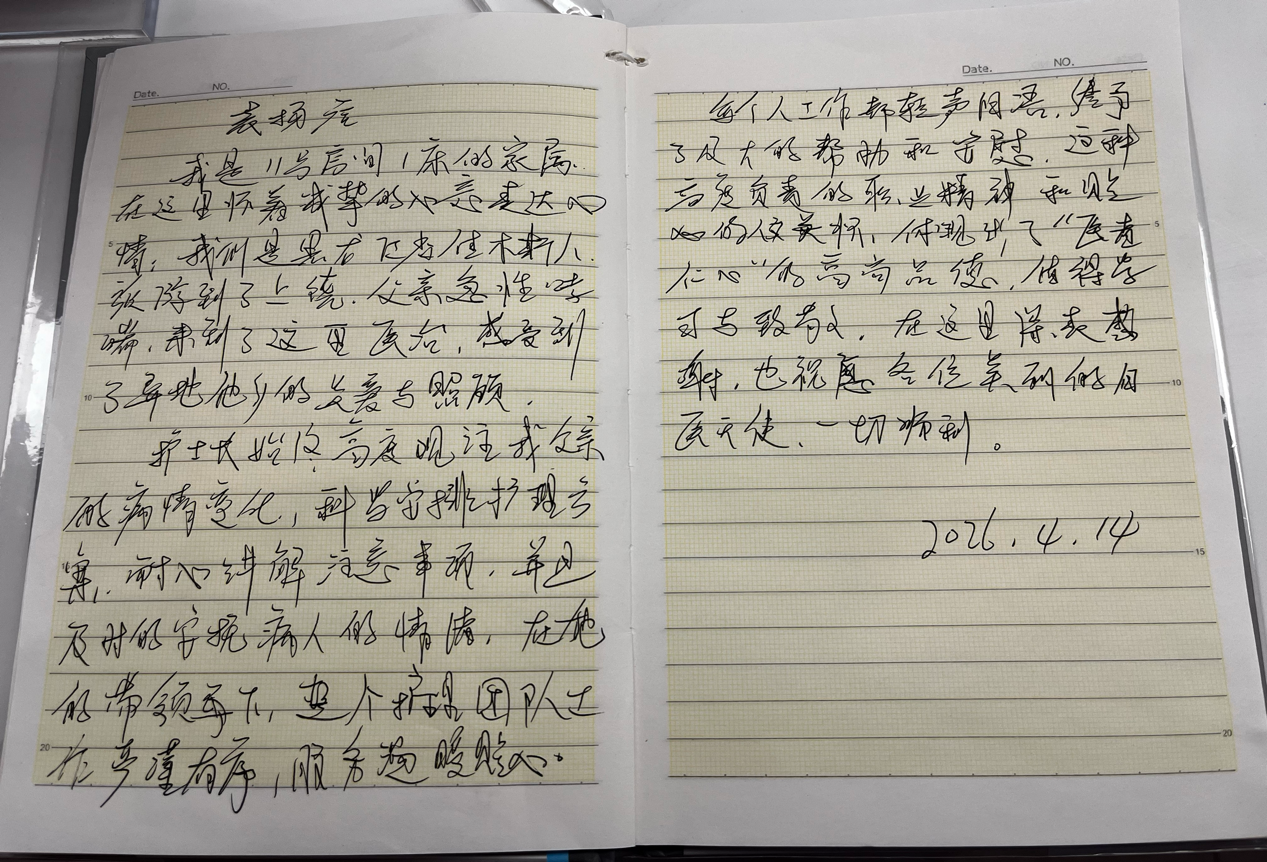 Date.        NO.
表扬信
我是11号房间1床的家属.
在这里怀着诚挚的心意表达心
情，我们是黑龙江省佳木斯人.
旅游到了上饶.父亲急性哮
喘，来到了这里医治，感受到
了异地他乡的关爱与照顾.
护士长始终高度观注我父亲
的病情变化，科学安排护理方
案，耐心讲解注意事项，并且
及时的安抚病人的情绪，在她
的带领导下，整个护理团队工
作严谨有序，服务温暖贴心。
Date.        NO.
每个人工作都轻声细语，给予
了及大的帮助和安慰，这种
高度负责的职业精神和贴
心的服务，体现出了“医者
仁心”的高尚品德，值得学
习与致敬，在这里深表感
谢，也祝愿各位美丽的白
衣天使，一切顺利。
2026.4.14
5
10
15
20
5
10
15
20